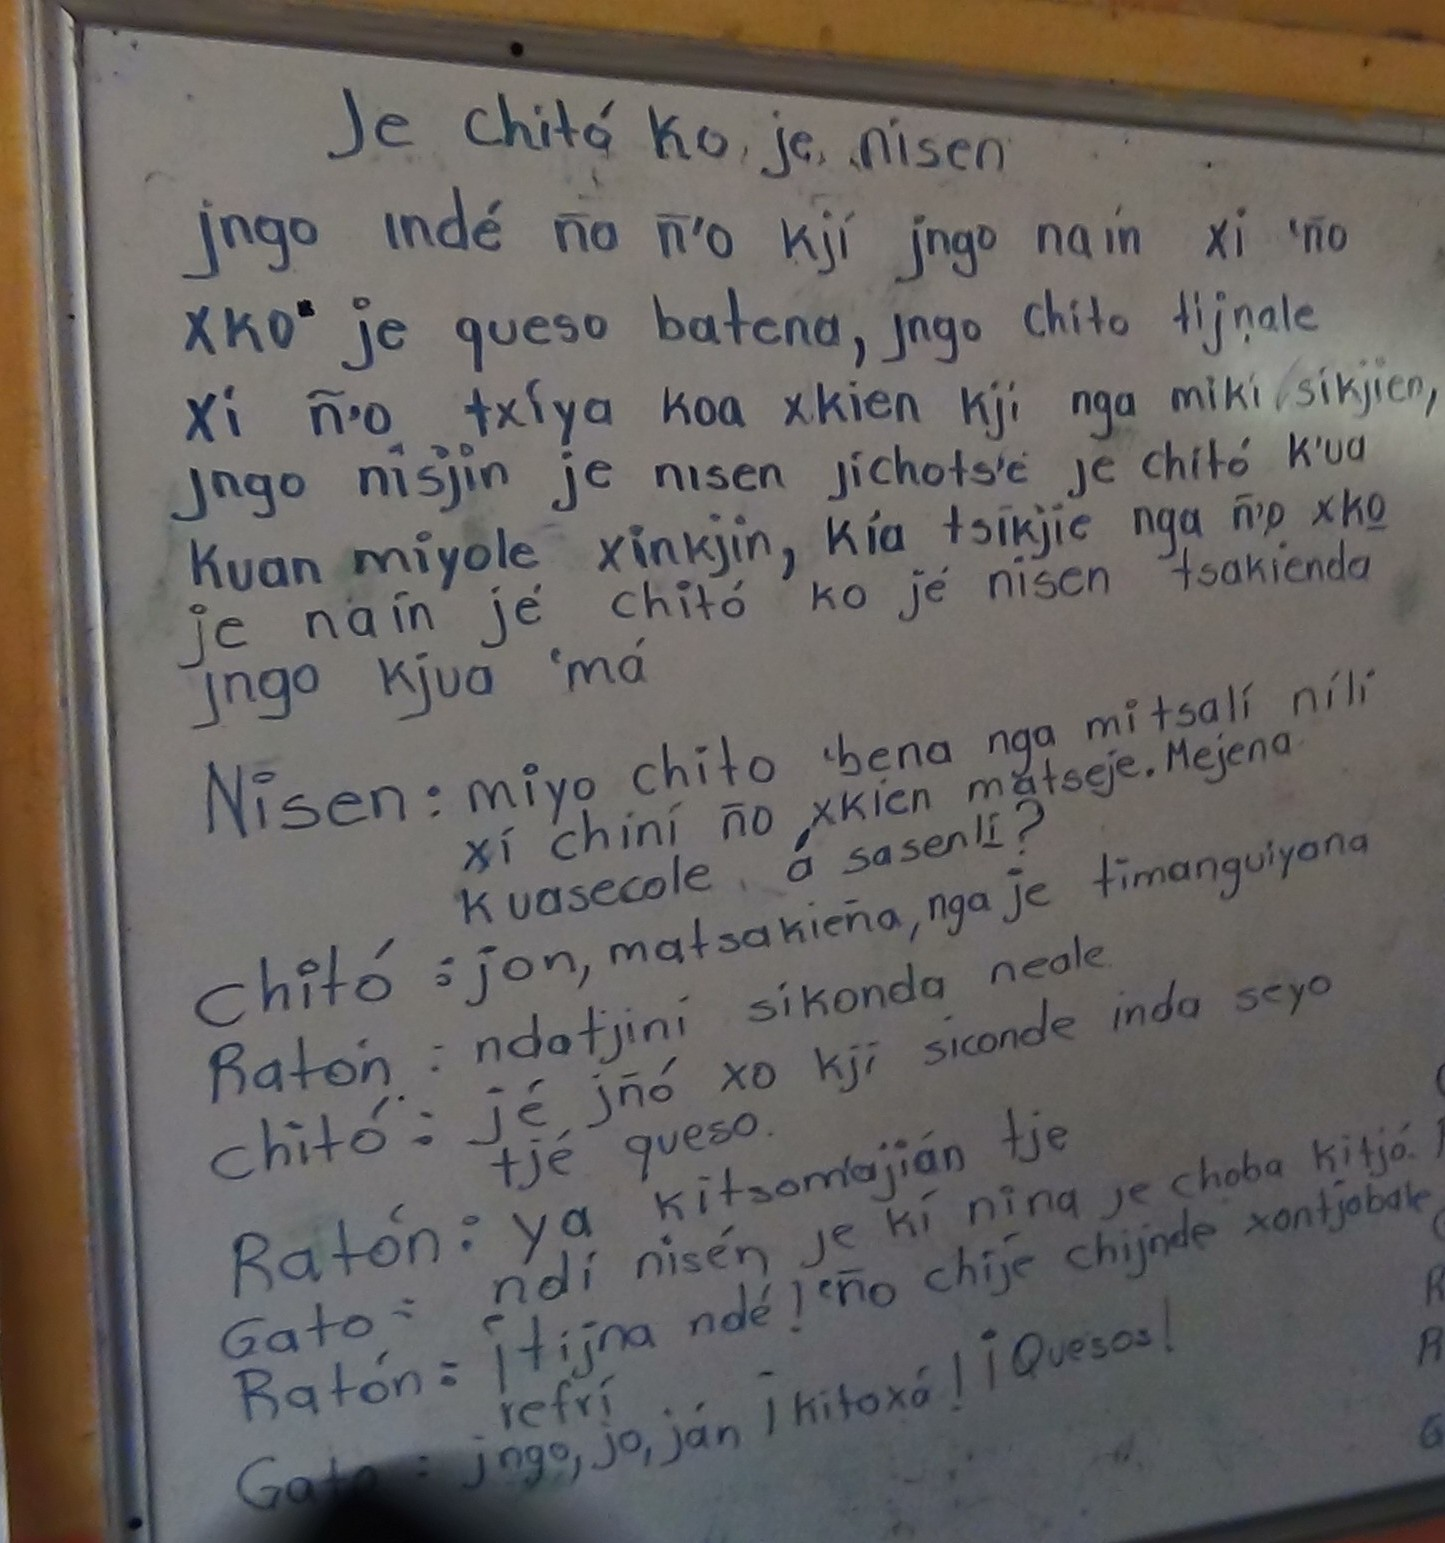 Je chitó ko je nisen
jngo indé ño ñ'o kjí jngo naín xi 'ño
xko je queso batena, jngo chito tijnale
xi ñ'o txíya koa xkien kji nga miki síkjien,
jngo nisjin je nisen jichots'e je chitó k'ua
kuan miyole xinkjin, kía tsikjie nga ñ'o xko
je naín jé chitó ko jé nisen tsakienda
jngo kjua 'má
Nisen: miyo chito 'bena nga mitsalí nílí
xí chiní ño xkien matseje. Mejena
kuasecole á sasenlí?
Chitó: jon, matsakieña, nga je timanguiyana
Ratón: ndatjiní síkonda neale
chitó: jé jñó xo kji siconde inda seyo
tjé queso.
Ratón: ya kitsomajián tje
ndí nisén je kí nina je choba kitjó.
Gato: ¡tijna ndé! 'ño chije chijnde xontjobale
Ratón: refrí
Gato: jngo, jo, ján ¡kitoxá! ¡Quesos!